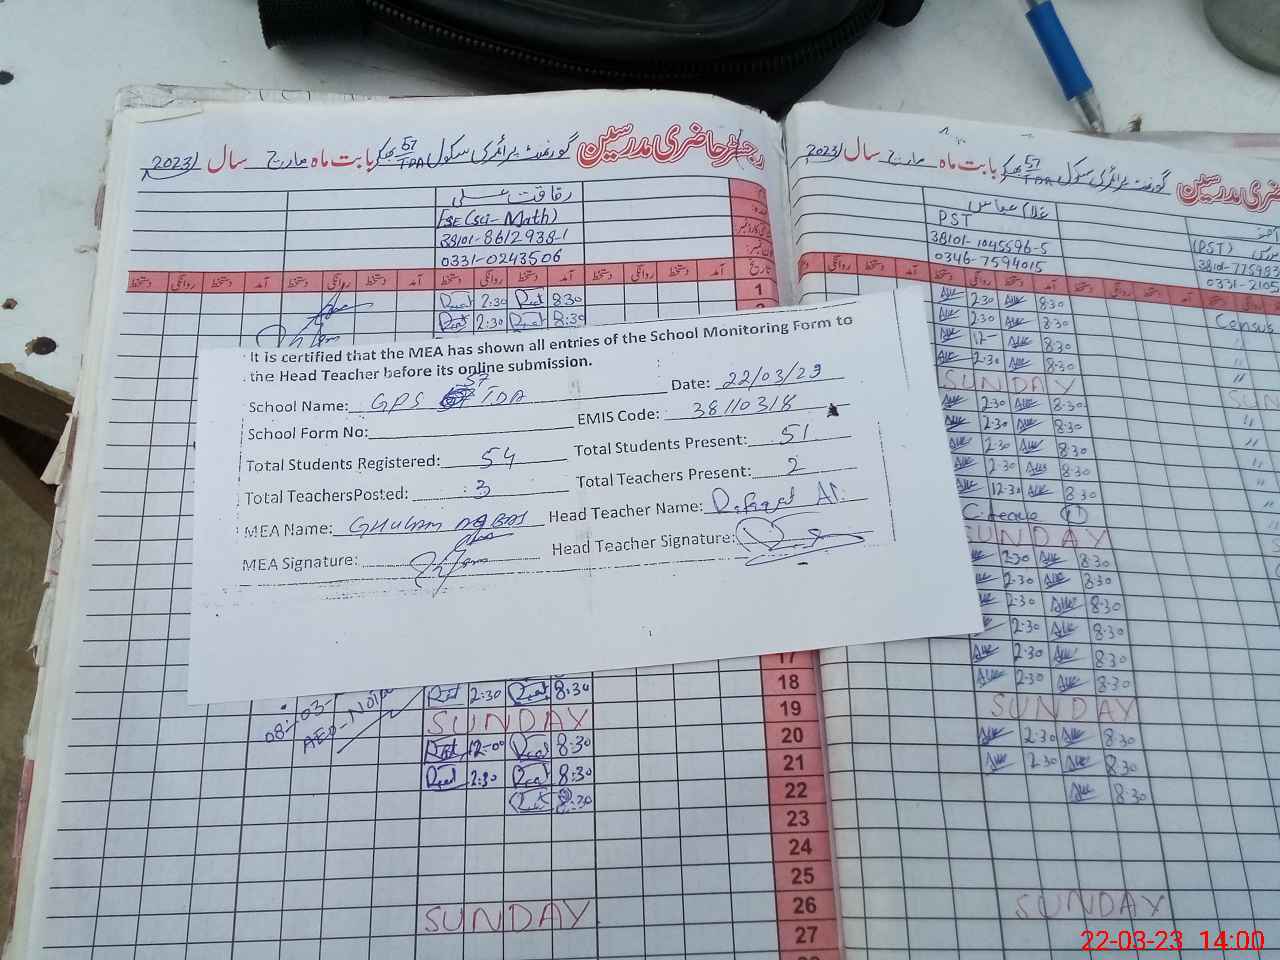 رجسٹر حاضری مدرسین گورنمنٹ پرائمری سکول 57 TDA بھکر بابت ماہ مارچ سال 2023
رفاقت علی
ESE (Sci-Math)
38101-8612938-1
0331-0243506
تاریخ آمد دستخط روانگی دستخط آمد دستخط روانگی دستخط آمد دستخط روانگی دستخط
1 8:30 2:30
8:30 2:30
It is certified that the MEA has shown all entries of the School Monitoring Form to
the Head Teacher before its online submission.
School Name: GPS 57 TDA Date: 22/03/23
School Form No: EMIS Code: 38110318
Total Students Registered: 54 Total Students Present: 51
Total TeachersPosted: 3 Total Teachers Present: 2
MEA Name: GHULAM ABBAS Head Teacher Name: Rafaqat Ali
MEA Signature: Head Teacher Signature:
17
18 8:30 2:30
08-03-
AEO-
19 SUNDAY
20 8:30 12-00
21 8:30 2:30
22 8:30
23
24
25
26 SUNDAY
27
گورنمنٹ پرائمری سکول 57 TDA بھکر بابت ماہ مارچ سال 2023
غلام عباس
PST
38101-1045596-5
0346-7594015
(PST)
38101-77598
0331-2105
Census
2:30 8:30
2:30 8:30
12- 8:30
2:30 8:30
SUNDAY
2:30 8:30
2:30 8:30
2:30 8:30
2:30 8:30
12:30 8:30
SUNDAY
2:30 8:30
2:30 8:30
2:30 8:30
2:30 8:30
2:30 8:30
2:30 8:30
SUNDAY
2:30 8:30
2:30 8:30
8:30
SUNDAY
22-03-23 14:00